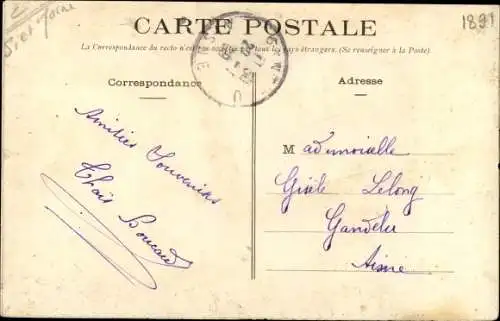 1891
CARTE POSTALE
La Correspondance du recto n'est pas acceptée par tous les pays étrangers. (Se renseigner à la Poste)
Correspondance
Adresse
Amitiés Souvenirs
Thaïs
Mademoiselle
Gisèle Lelong
Gandelu
Aisne